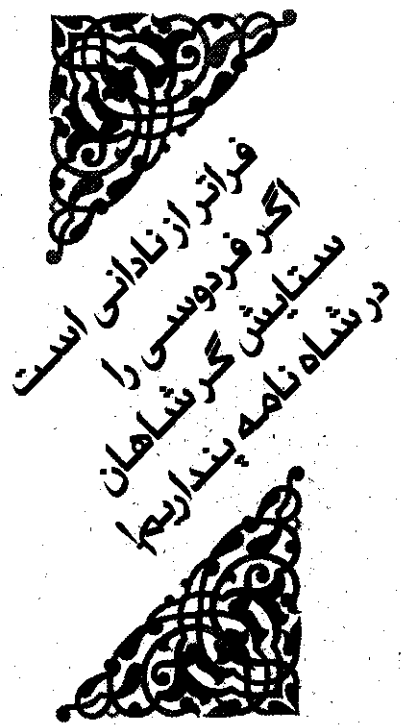 فراتر از نادانی است
اگر فردوسی را
ستایش گر شاهان
در شاه نامه پنداریم!